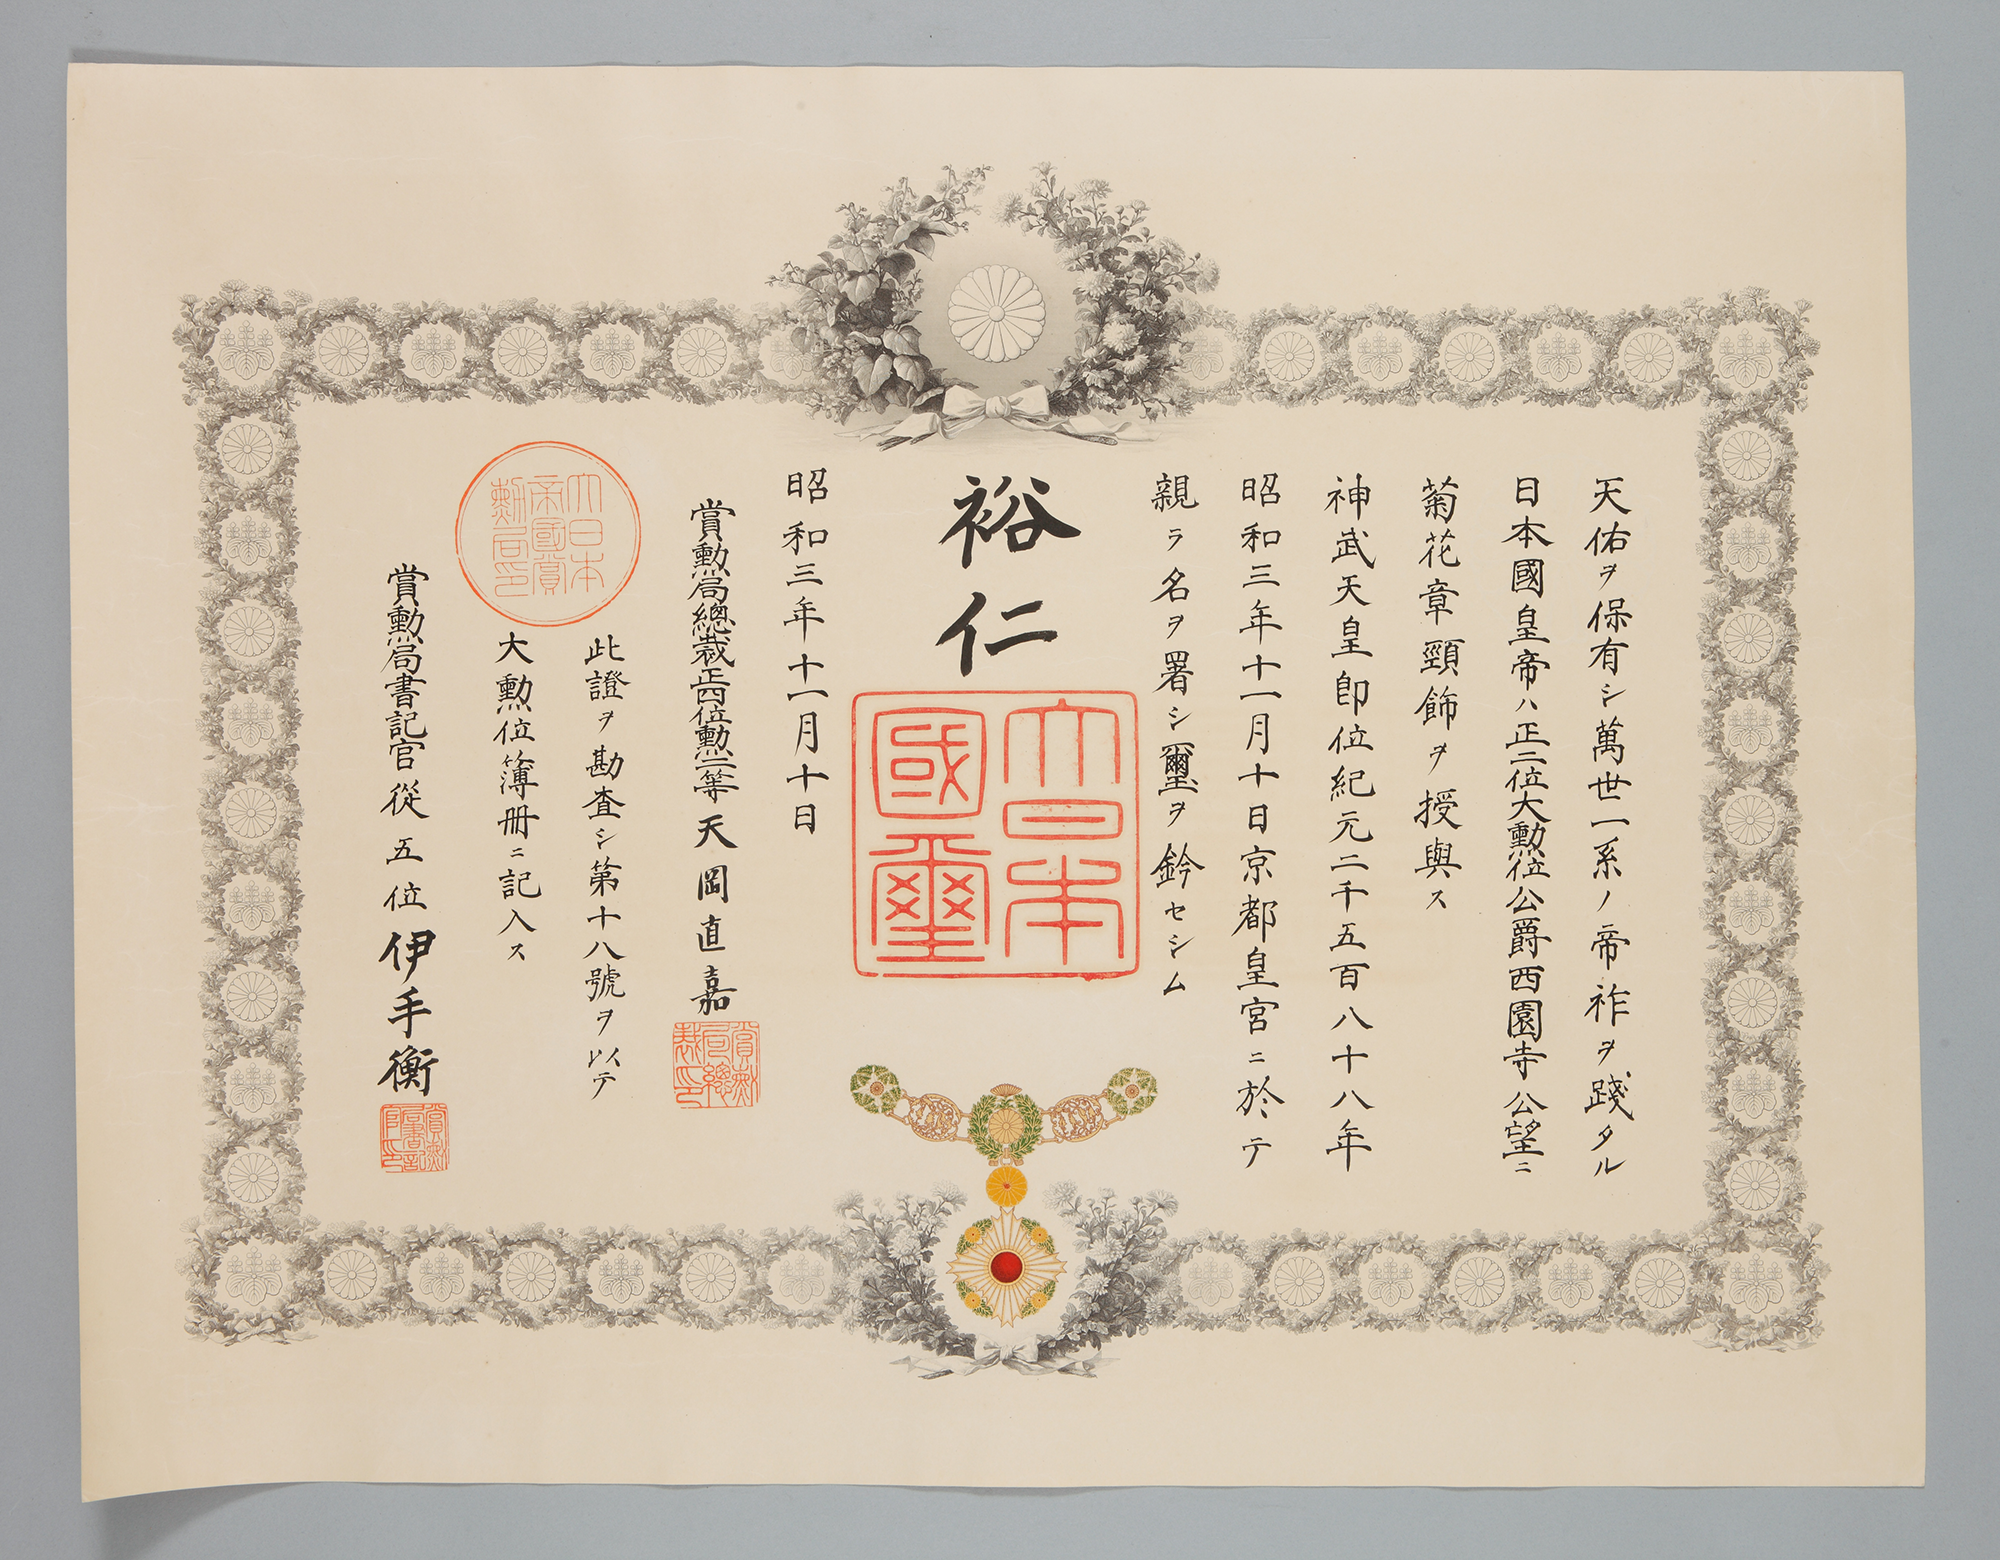 天佑ヲ保有シ萬世一系ノ帝祚ヲ踐タル
日本國皇帝ハ正二位大勲位公爵西園寺公望ニ
菊花章頸飾ヲ授與ス
神武天皇即位紀元二千五百八十八年
昭和三年十一月十日京都皇宮ニ於テ
親ラ名ヲ署シ璽ヲ鈐セシム
裕仁
大日本國璽
昭和三年十一月十日
賞勲局總裁正四位勲二等天岡直嘉
賞勲局總裁印
此證ヲ勘査シ第十八號ヲ以テ
大勲位簿册ニ記入ス
大日本帝國賞勲局印
賞勲局書記官從五位伊手衡
賞勲局書記官印